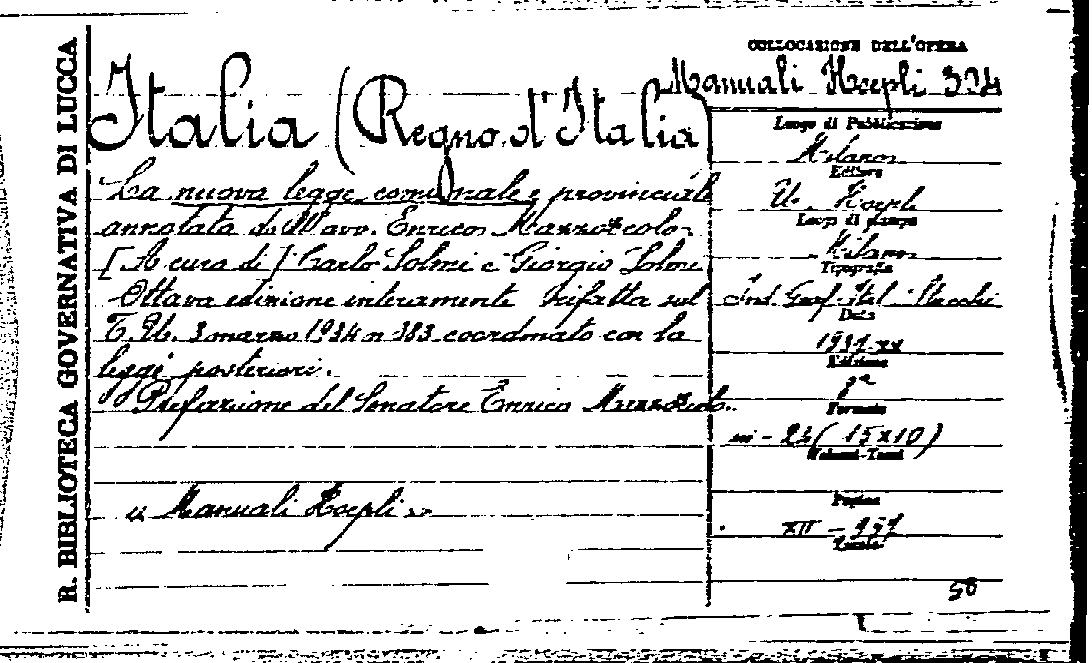 R. BIBLIOTECA GOVERNATIVA DI LUCCA
COLLOCAZIONE DELL'OPERA
Manuali Hoepli 334
Italia (Regno d'Italia)
La nuova legge comunale e provinciale
annotata dall'avv. Enrico Mazzoccolo
[A cura di] Carlo Solmi e Giorgio Solmi
Ottava edizione interamente rifatta sul
T.U. 3 marzo 1934 n 383 coordinato con la
leggi posteriori.
Prefazione del Senatore Enrico Mazzoccolo.
« Manuali Hoepli »
Luogo di Pubblicazione
Milano
Editore
U. Hoepli
Luogo di stampa
Milano
Tipografia
Ind. Graf. Ital. Stucchi
Data
Edizione
8ª
Formato
in - 24 (15x10)
Volumi-Tomi
Pagine
XII -
Tavole